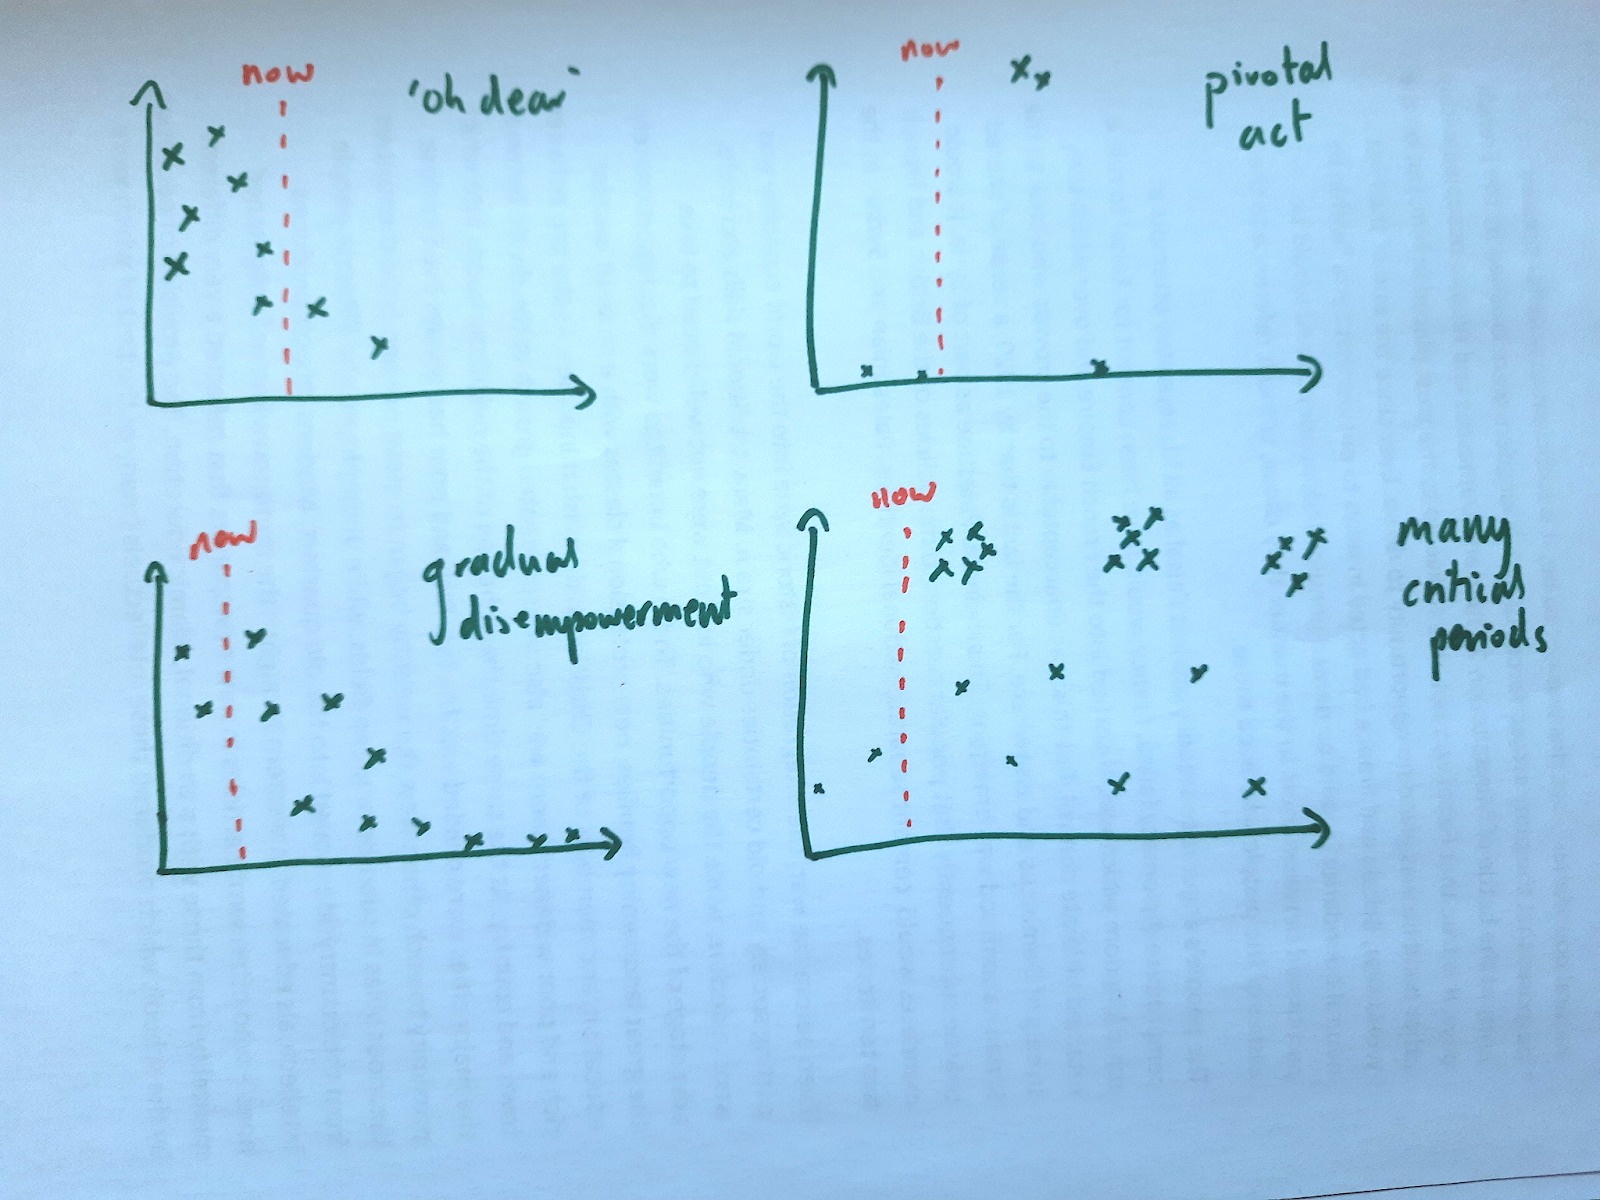 now
'oh dear'
now
pivotal
act
now
gradual
disempowerment
now
many
critical
periods